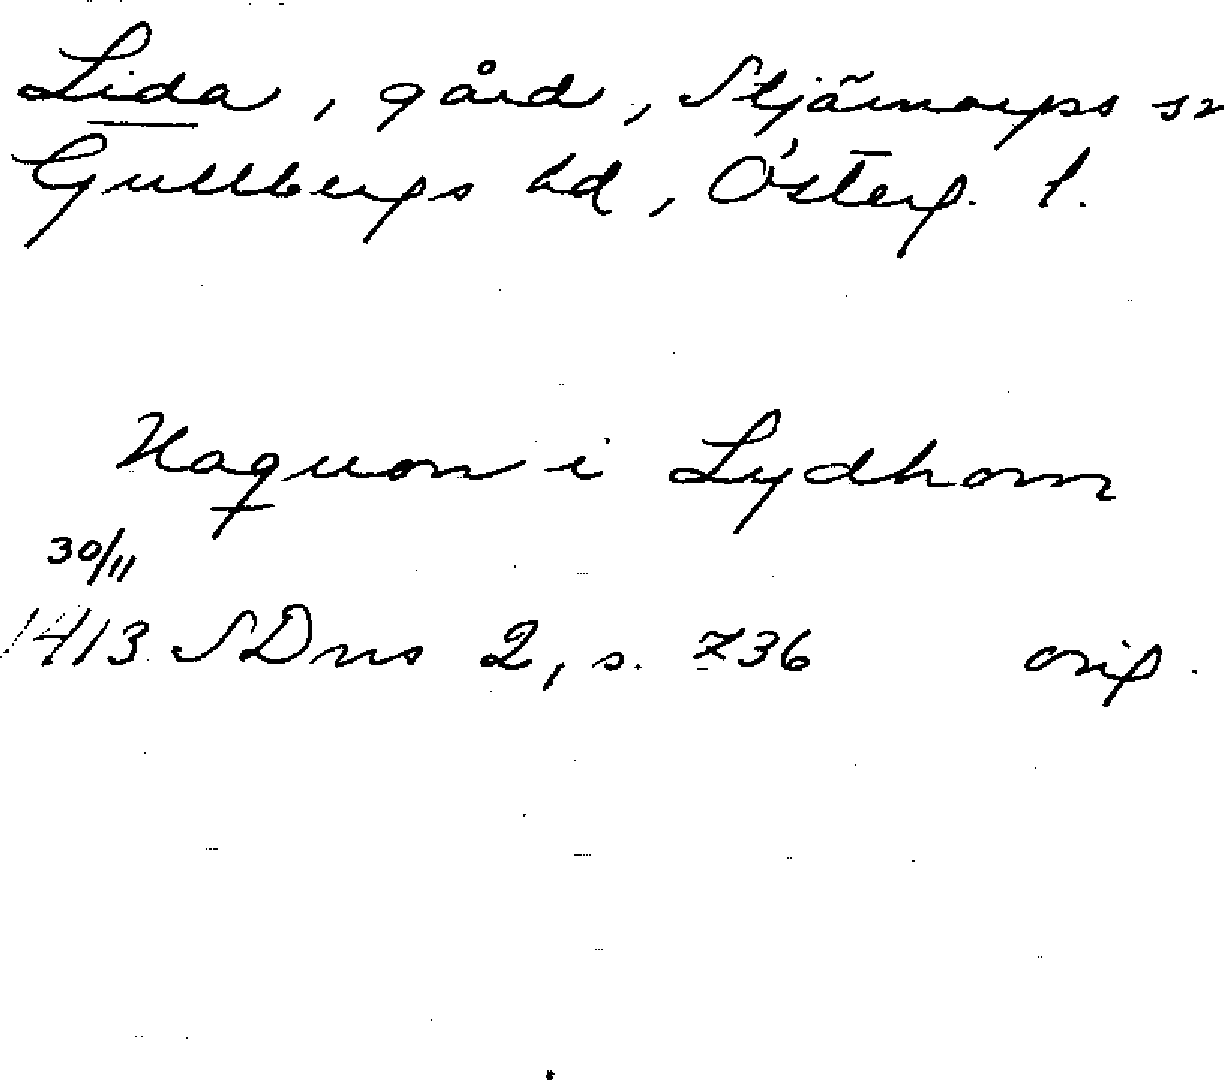 Lida, gård, Stjärnorps sn
Gullbergs hd, Österg. l.
Haquon i Lydhom
30/11
1413 SDns 2, s. 736 orig.